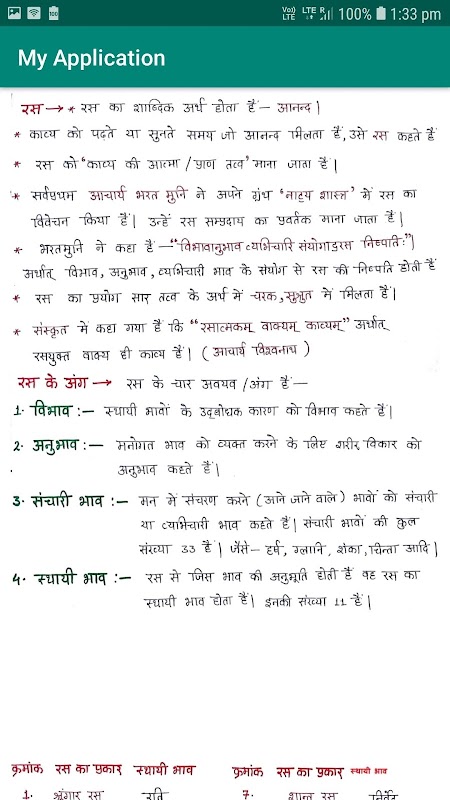 Vo) LTE LTE R 100% 1:33 pm
My Application
रस → * रस का शाब्दिक अर्थ होता है - आनन्द।
* काव्य को पढ़ते या सुनते समय जो आनन्द मिलता है, उसे रस कहते हैं
* रस को 'काव्य की आत्मा / प्राण तत्व' माना जाता है।
* सर्वप्रथम आचार्य भरत मुनि ने अपने ग्रंथ 'नाट्य शास्त्र' में रस का
विवेचन किया है। उन्हें रस सम्प्रदाय का प्रवर्तक माना जाता है।
* भरतमुनि ने कहा है - "विभावानुभाव व्यभिचारि संयोगाद्रस निष्पतिः"।
अर्थात् विभाव, अनुभाव, व्यभिचारी भाव के संयोग से रस की निष्पति होती है
* रस का प्रयोग सार तत्व के अर्थ में चरक, सुश्रुत में मिलता है।
* संस्कृत में कहा गया है कि "रसात्मकम् वाक्यम् काव्यम्" अर्थात्
रसयुक्त वाक्य ही काव्य है। ( आचार्य विश्वनाथ )
रस के अंग → रस के चार अवयव / अंग हैं -
1. विभाव :- स्थायी भावों के उद्बोधक कारण को विभाव कहते हैं।
2. अनुभाव :- मनोगत भाव को व्यक्त करने के लिए शरीर विकार को
अनुभाव कहते हैं।
3. संचारी भाव :- मन में संचरण करने (आने जाने वाले) भावों को संचारी
या व्यभिचारी भाव कहते हैं। संचारी भावों की कुल
संख्या 33 है। जैसे - हर्ष, ग्लानि, शंका, चिन्ता आदि।
4. स्थायी भाव :- रस से जिस भाव की अनुभूति होती है वह रस का
स्थायी भाव होता है। इनकी संख्या 11 है।
क्रमांक रस का प्रकार स्थायी भाव क्रमांक रस का प्रकार स्थायी भाव
1. श्रृंगार रस रति 7. शान्त रस निर्वेद